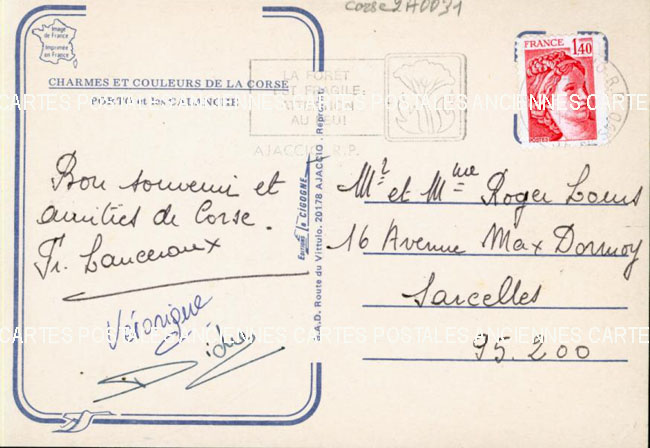 Corse 2A0031
Image
de France
Imprimée
en France
CHARMES ET COULEURS DE LA CORSE
PORTO et les CALANCHE
LA FORÊT
EST FRAGILE:
ATTENTION
AU FEU!
AJACCIO R.P.
FRANCE
1,40
POSTES
CARTES POSTALES ANCIENNES CARTES POSTALES ANCIENNES CARTES
Bon souvenir et
amitiés de Corse.
Fr. Lanceraux
Véronique
Didier
Editions la CIGOGNE
R.A.D. Route du Vittulo. 20178 AJACCIO - Reproduction
Mr et Mme Roger
16 Avenue Max Dormoy
Sarcelles
95.200
CARTES POSTALES ANCIENNES CARTES POSTALES ANCIENNES CARTE